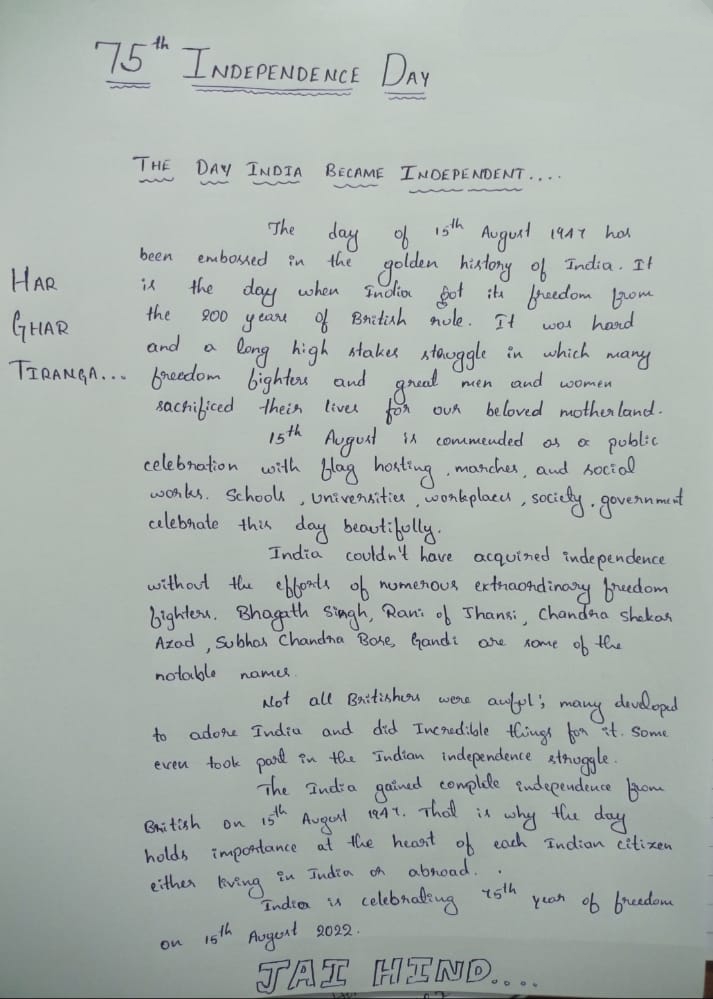 75th INDEPENDENCE DAY
THE DAY INDIA BECAME INDEPENDENT....
The day of 15th August 1947 has
been embossed in the golden history of India. It
is the day when India got its freedom from
the 200 years of British rule. It was hard
and a long high stakes struggle in which many
freedom fighters and great men and women
sacrificed their lives for our beloved motherland.
HAR
GHAR
TIRANGA...
15th August is commended as a public
celebration with flag hosting, marches, and social
works. Schools, universities, workplaces, society, government
celebrate this day beautifully.
India couldn't have acquired independence
without the efforts of numerous extraordinary freedom
fighters. Bhagath Singh, Rani of Jhansi, Chandra Shekar
Azad, Subhas Chandra Bose, Gandi are some of the
notable names.
Not all Britishers were awful; many developed
to adore India and did Incredible things for it. Some
even took part in the Indian independence struggle.
The India gained complete independence from
British on 15th August 1947. That is why the day
holds importance at the heart of each Indian citizen
either living in India or abroad.
India is celebrating 75th year of freedom
on 15th August 2022.
JAI HIND....